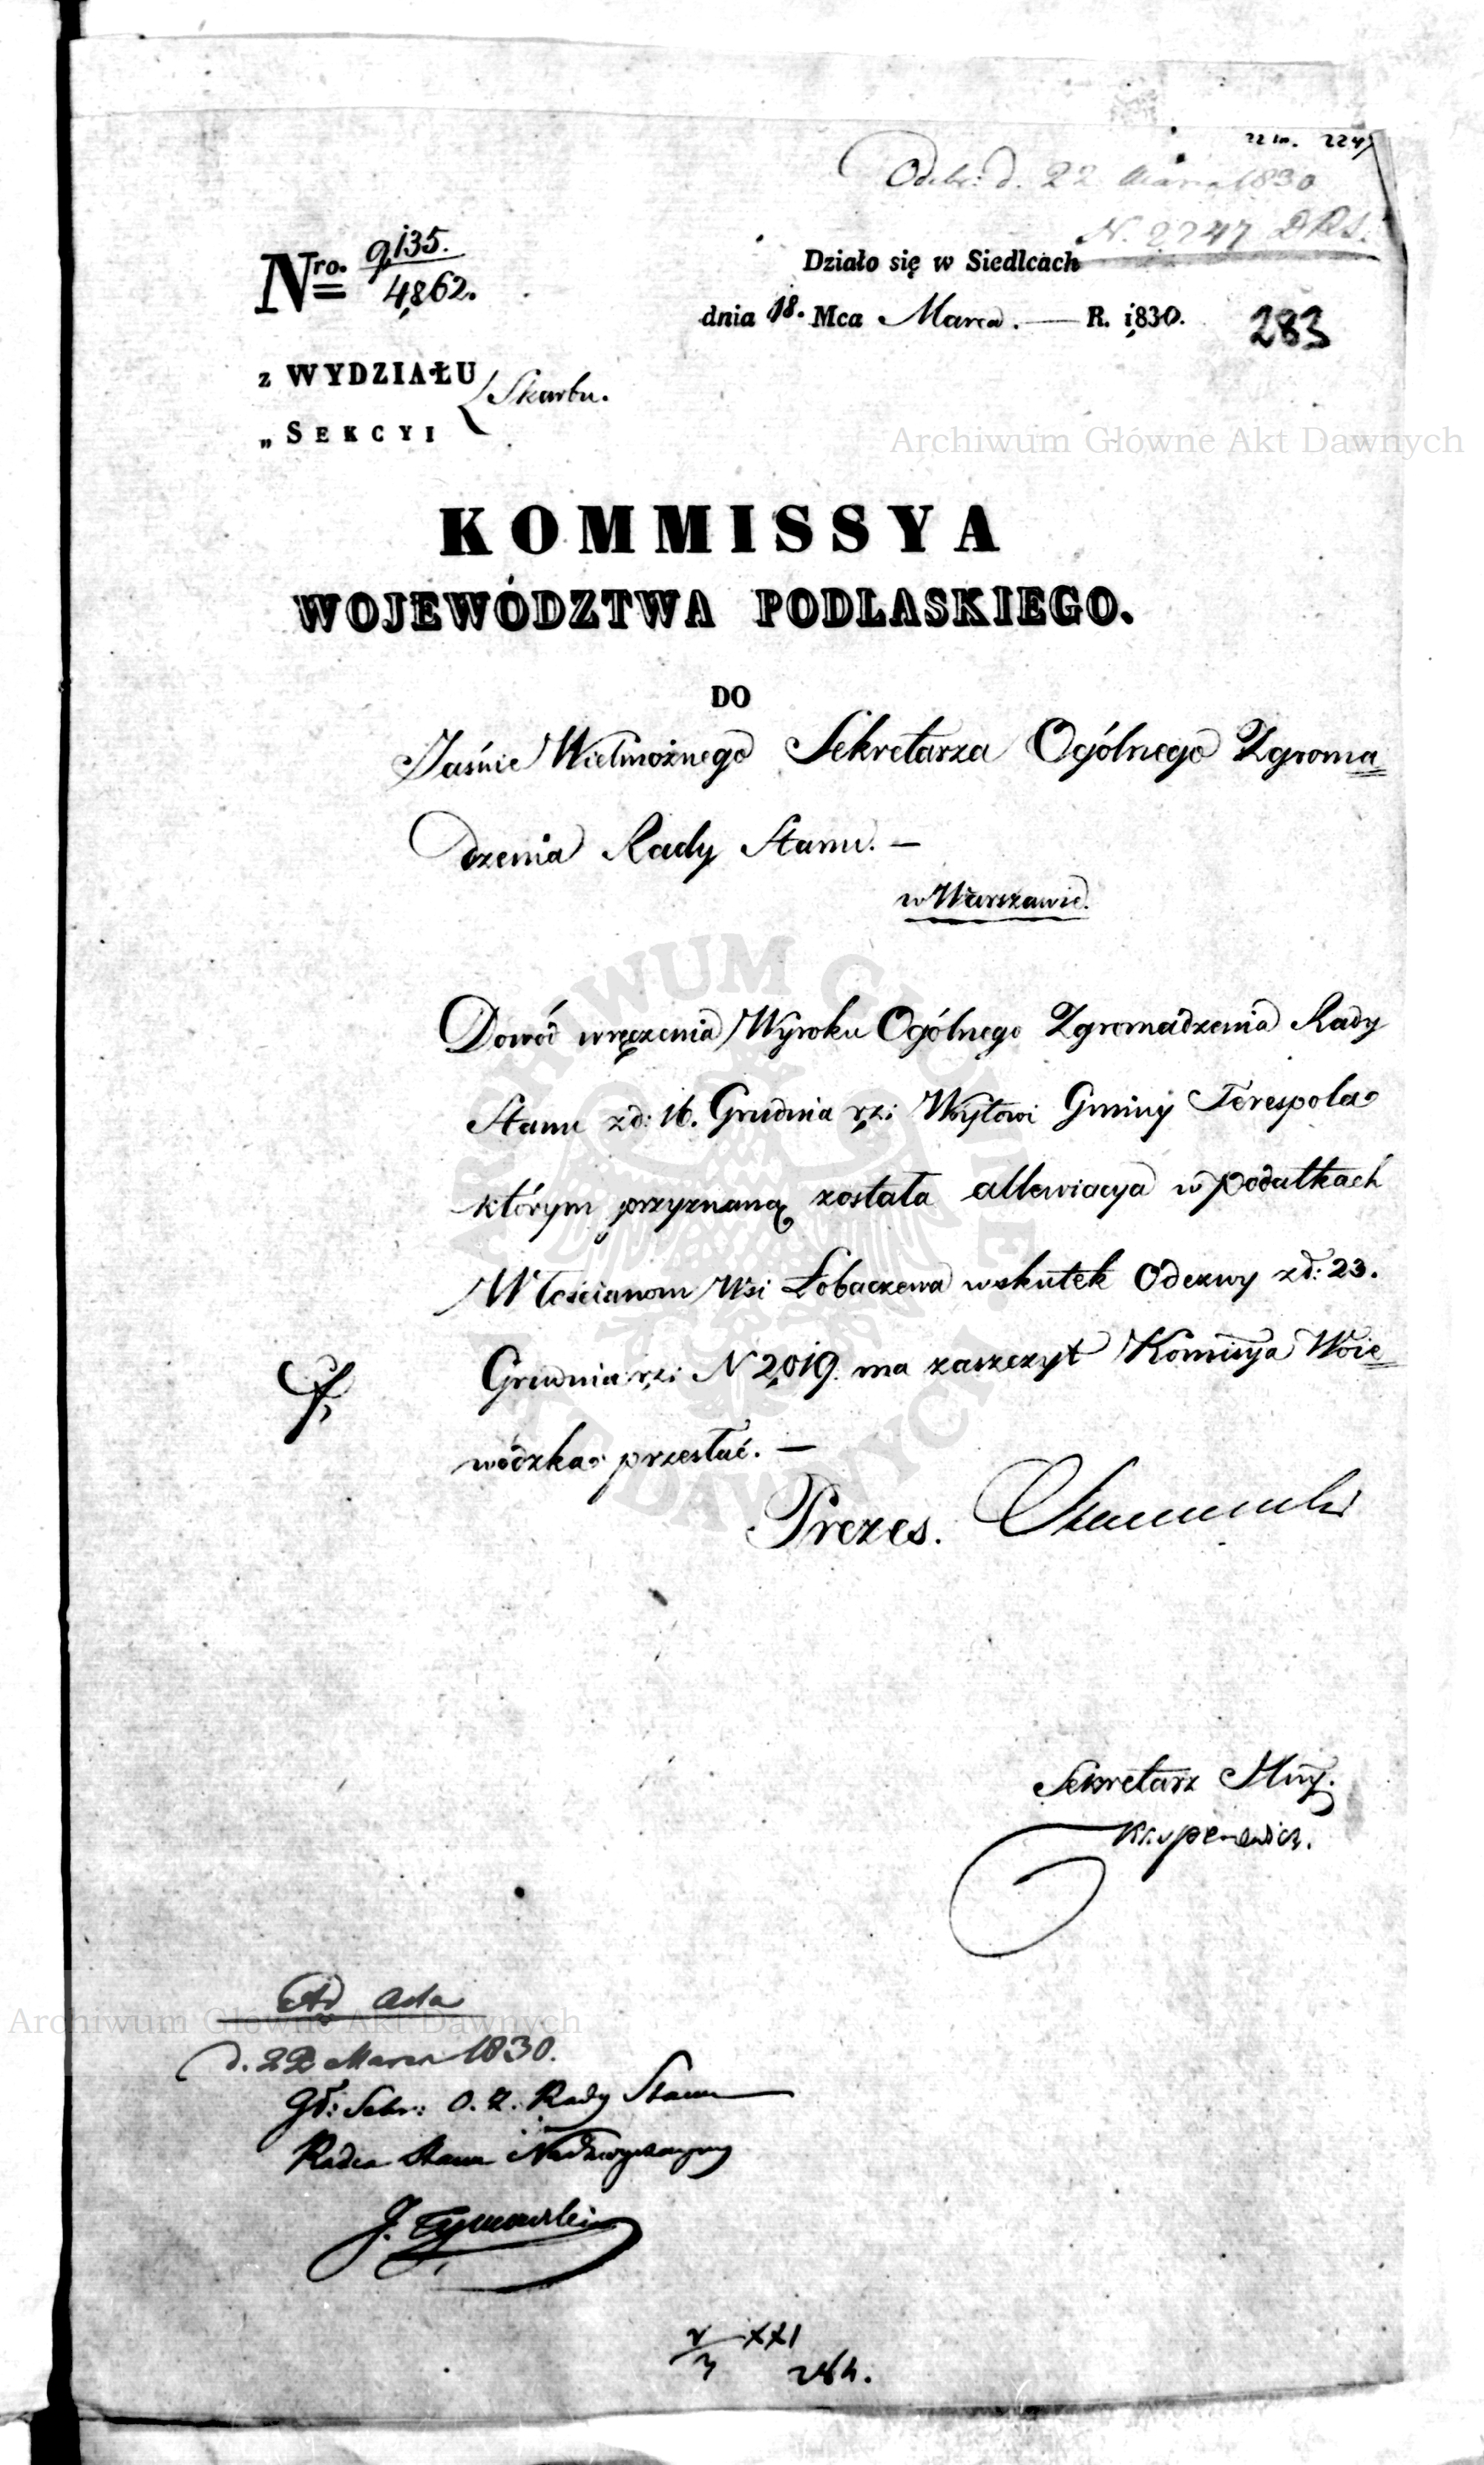 22 m. 2247
Odebr: d. 22 Marca 1830
N. 2247 DRS.
Nro. 9135.
4,862.
Działo się w Siedlcach
dnia 18. Mca Marca. — R. 1830.
283
z WYDZIAŁU
Skarbu.
„ SEKCYI
Archiwum Główne Akt Dawnych
KOMMISSYA
WOJEWÓDZTWA PODLASKIEGO.
DO
Jaśnie Wielmożnego Sekretarza Ogólnego Zgroma
dzenia Rady Stanu. —
w Warszawie.
Dowód wręczenia Wyroku Ogólnego Zgromadzenia Rady
Stanu z d: 16. Grudnia r.z: Wóytowi Gminy Terespola
którym przyznaną została allewiacya w podatkach
Włościanom Wsi Łobaczewa w skutek Odezwy z d: 23.
Grudnia r.z: N 2,019. ma zaszczyt Komissya Woie
wódzka przesłać. —
Prezes.
Sekretarz Jlny.
ARCHIWUM GŁÓWNE AKT DAWNYCH
Ad Acta
Archiwum Główne Akt Dawnych
d. 22 Marca 1830.
Gł: Sekr: O. Z. Rady Stanu
Radca Stanu Nadzwyczayny
J. Tymowski
XXI